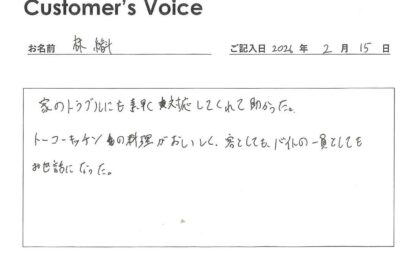 Customer's Voice
お名前 林 ご記入日 2026 年 2 月 15 日
家のトラブルにも素早く対応してくれて助かった。
トーコーキッチンの料理がおいしく、客としても、バイトの一員としても
お世話になった。